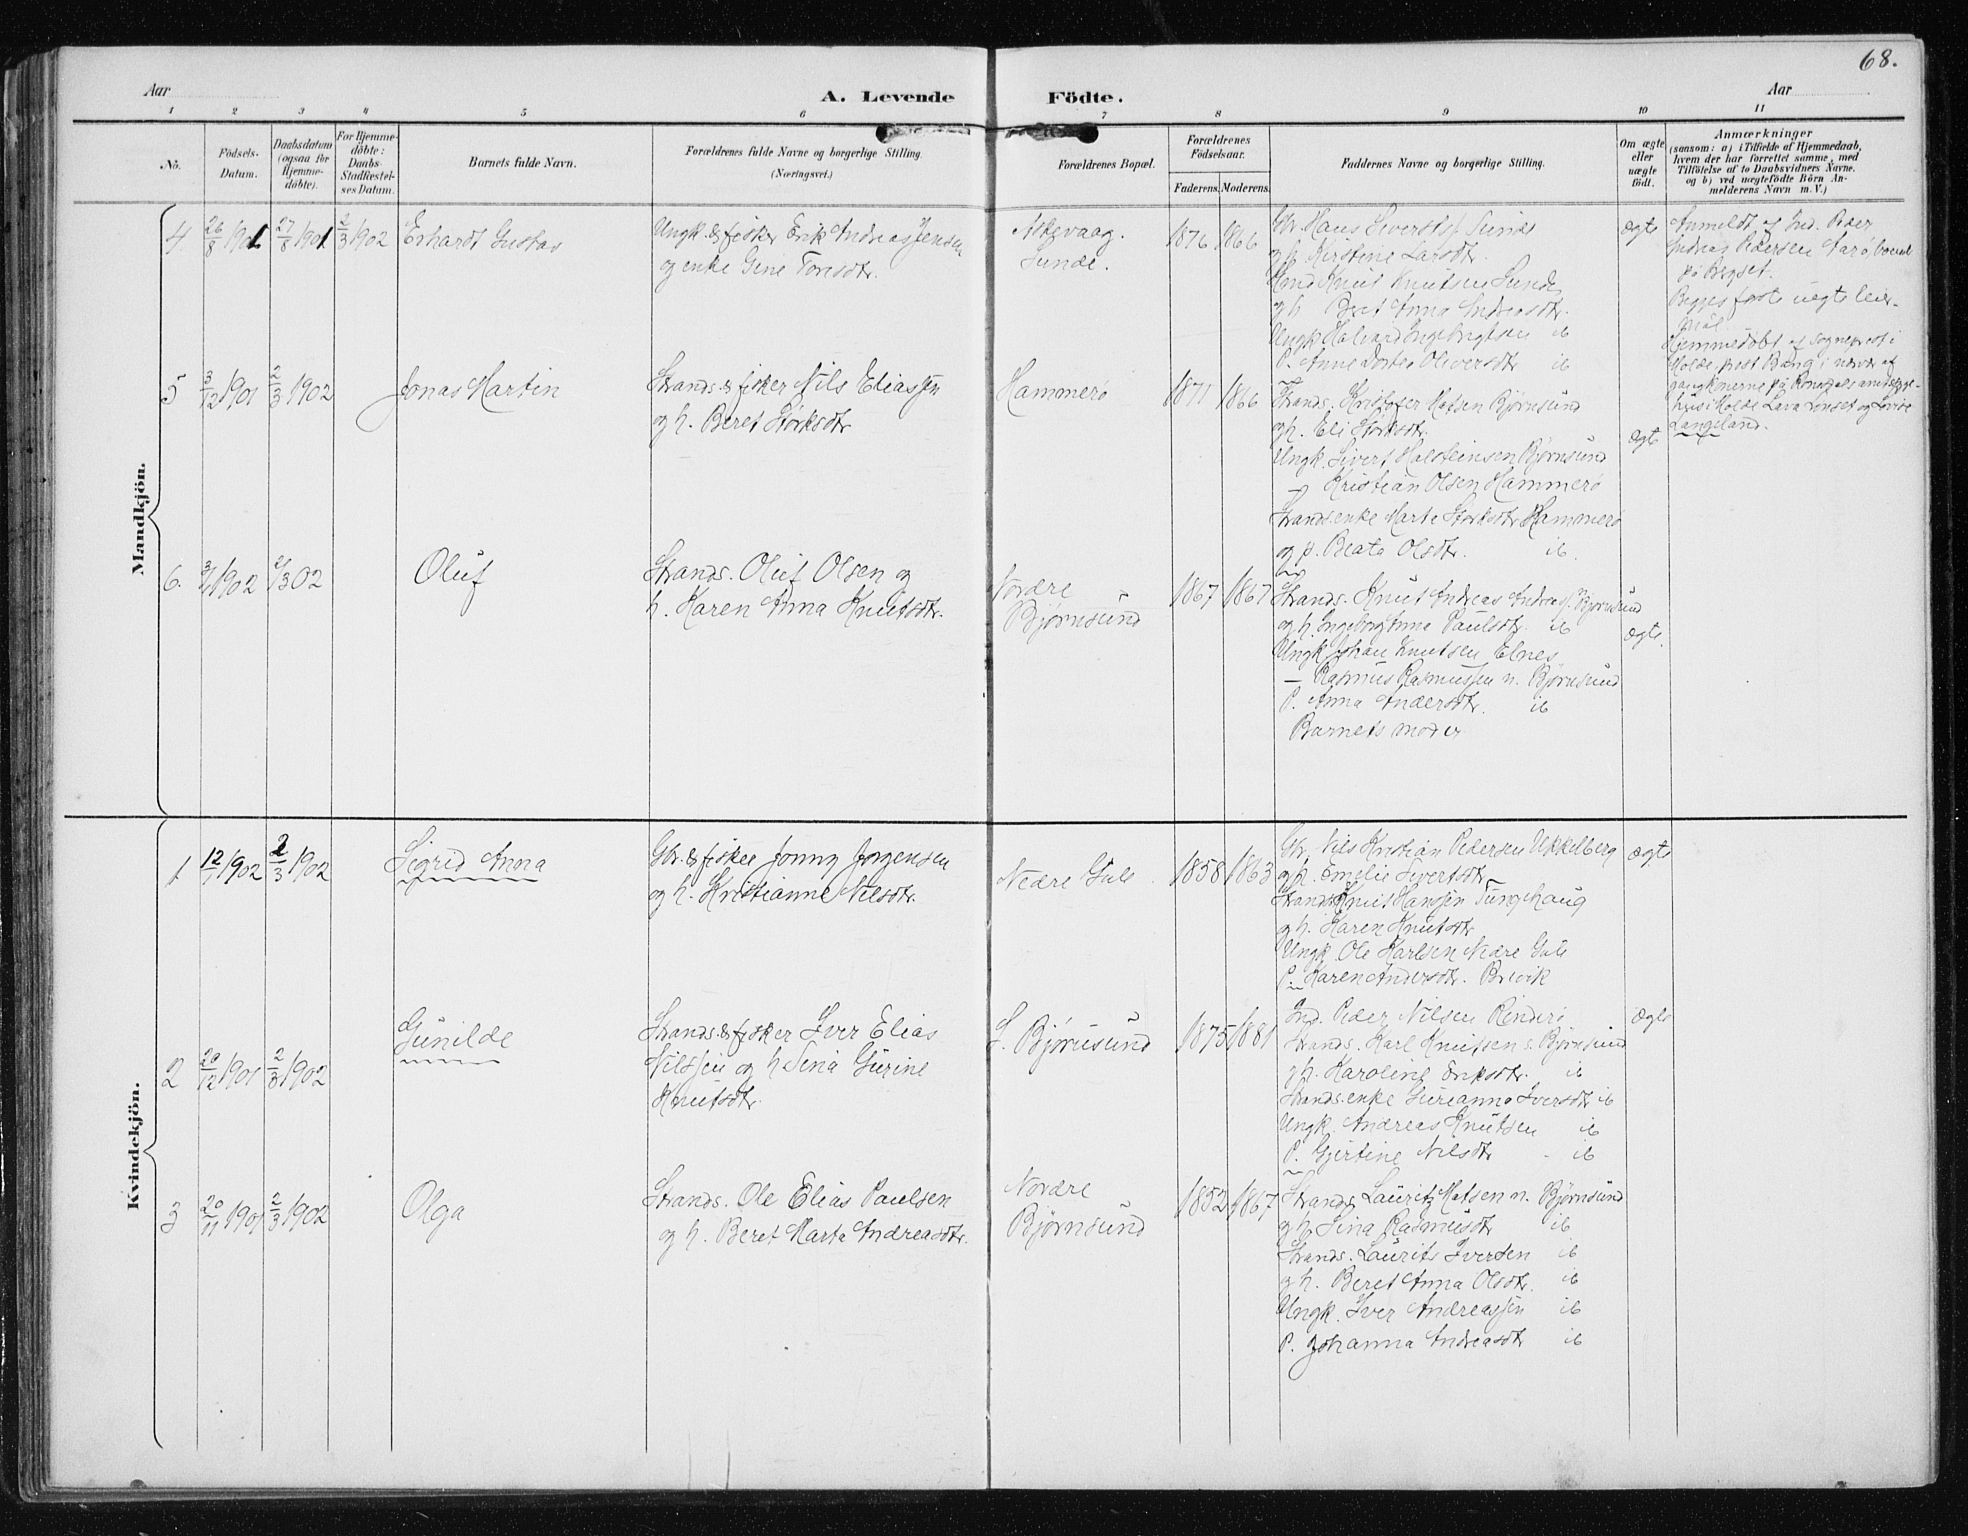 68.
Aar
A. Levende Födte.
Aar
1 2 3 4 5 6 7 8 9 10 11
No.
Födsels-
Datum.
Daabsdatum
(ogsaa for
Hjemme-
döbte).
For Hjemme-
döbte:
Daabs-
Stadfæstel-
ses Datum.
Barnets fulde Navn.
Forældrenes fulde Navne og borgerlige Stilling.
(Næringsvei.)
Forældrenes Bopæl.
Forældrenes
Födselsaar.
Faderens.
Moderens.
Faddernes Navne og borgerlige Stilling.
Om ægte
eller
uægte
födt.
Anmærkninger
(saasom: a) i Tilfælde af Hjemmedaab,
hvem der har forrettet samme, med
Tilföielse af to Daabsvidners Navne,
og b) ved uægtefödte Börn An-
melderens Navn m. V.)
Mandkjön.
4
26/8 1901
27/8 1901
2/3 1902
Erhardt Gustav
Ungk. & fisker Erik Andreas Jensen
og enke Gine Tomsdtr.
Askevaag.
Sunde.
1876
1866
Gbr. Hans Sivertsf Sunde
og h. Kirstine Larsdtr.
Knut Knutsen Sunde
og h. Beret Anna Andreasdtr.
Ungk Halvard Ingebrigtsen ib
P. Anne Dortea Oliversdtr ib
ægte
Anmeldt af Ind. Peder
Andreas Pedersen
på Bergset.
Begges første uegte leier-
mål
5
3/12 1901
2/3 1902
Jonas Martin
Strands. & fisker Nils Eliassen
og h. Beret Størksdtr
Hammerø
1871
1866
Strands. Kristofer Matsen Bjørnsund
og h. Eli Størksdtr.
Ungk. Sivert Halsteinsen Bjørnsund
– Kristian Olsen Hammerø
Strands.enke Marta Størksdtr Hammerø
og p. Beata Olsdtr. ib.
ægte
Hjemmedøbt af Sogneprest i
Molde, prost Bang i nærvær af
på Romsdals amtssyge-
hus i Molde Lava Lønset og Lovise
Langeland.
6.
3/1 1902
2/3 02
Oluf
Strands. Oluf Olsen og
h. Karen Anna Knutsdtr.
Nordre
Bjørnsund
1867
1867
Strands. Knut Andreas Andreas. n. Bjørnsund
og h. Ingeborg Anna Paulsdtr. ib
Ungk Johan Knutsen Elnes
– Rasmus Rasmussen n. Bjørnsund
P. Anna Andersdtr. ib
Barnets moder
ægte.
Kvindekjön.
1
12/1 1902
2/3 1902
Sigrid Anna
Gbr. & fisker Jonny Jørgensen
og h. Kristianne Nilsdtr.
Nedre Gule
1858
1863
Gbr. Nils Kristian Pedersen Ukkelberg
og h. Emelie Sivertsdtr
Strands Knut Hanssen Tungehaug
og h. Karen Knutsdtr
Ungk. Ole Karlsen Nedre Gule
P. Karen Andersdtr. Brevik
ægte
2
29/12 1901
2/3 1902
Gunilde
Strands. & fisker Iver Elias
Nilssen og h Sina Gurine
Knutsdtr.
S. Bjørnsund
1875
1881
Ind. Peder Nilsen Rindarø
Strands. Karl Knutsen s. Bjørnsund
og h. Karoline Eriksdtr. ib
Strands.enke Gurianna Iversdtr ib
Ungk. Andreas Knutsen ib
P. Gjertine Nilsdtr ib
ægte
3
20/11 1901
2/3 1902
Olga
Strands. Ole Elias Paulsen
og h. Beret Marta Andreasdtr.
Nordre
Bjørnsund
1852
1867
Strands. Lauritz Matsen n. Bjørnsund
og h. Sina Rasmusdtr ib
Strands. Laurits Iversen ib
og h. Beret Anna Olsdtr. ib
Ungk. Iver Andreassen ib
P. Johanna Andreasdtr ib